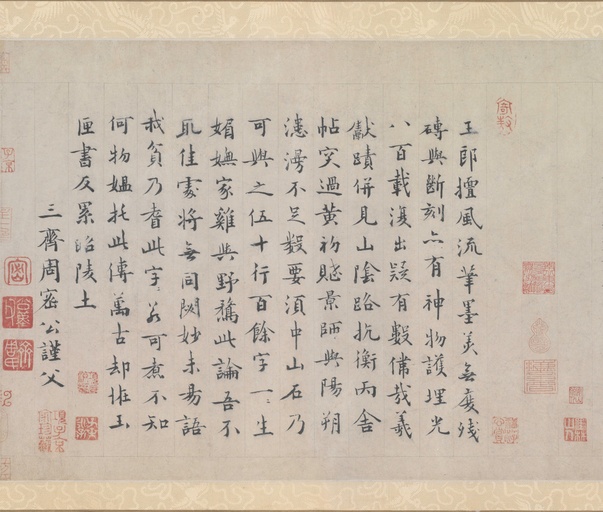 王郎擅風流筆墨美無度殘
磚與斷刻亦有神物護埋光
八百載復出疑有數儻哉羲
獻蹟併見山陰路抗衡丙舍
帖突過黃初賦景師與陽朔
漶漫不足數要須中山石乃
可與之伍十行百餘字一一生
媚嫵家雞與野鶩此論吾不
取佳處將無同闕妙未易語
我貧乃耆此字若可煮不知
何物媼托此傳萬古却推玉
匣書反累昭陵土
三齊周密公謹父